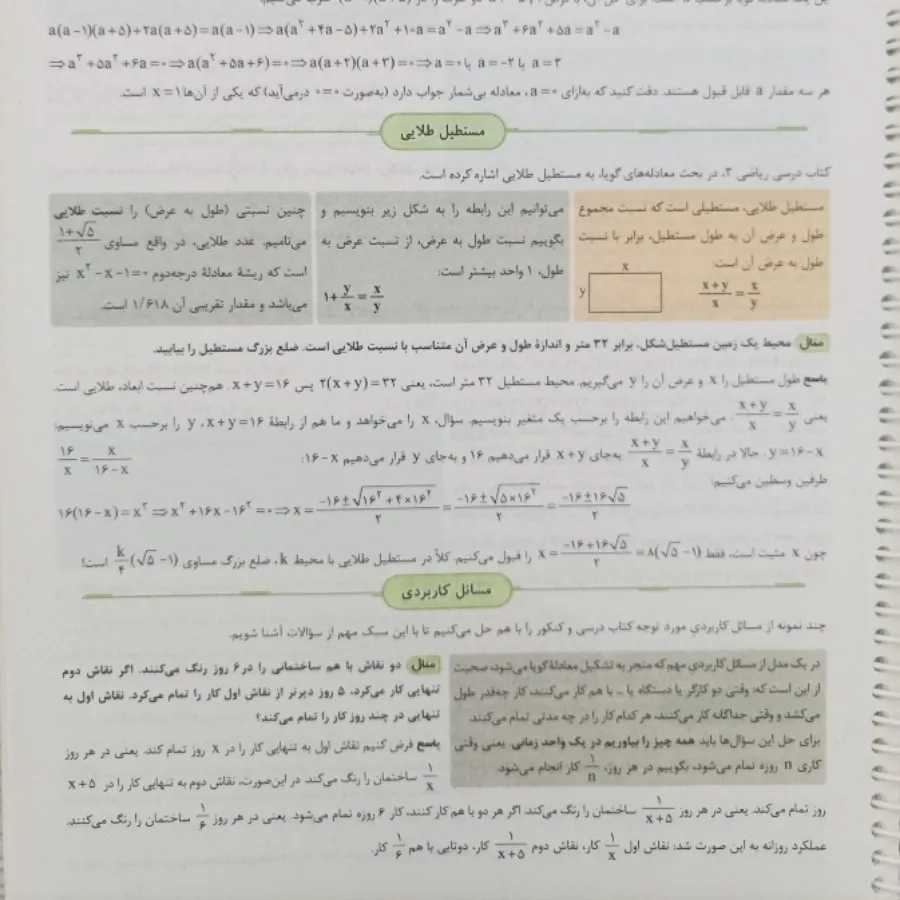 a(a−1)(a+۵)+۲a(a+۵)=a(a−1)⇒a(a²+۴a−۵)+۲a²+۱۰a=a²−a⇒a³+۶a²+۵a=a²−a
⇒a³+۵a²+۶a=۰⇒a(a²+۵a+۶)=۰⇒a(a+۲)(a+۳)=۰⇒a=۰ یا a=−۲ یا a=۳
هر سه مقدار a قابل قبول هستند. دقت کنید که به‌ازای a=۰، معادله بی‌شمار جواب دارد (به‌صورت ۰=۰ درمی‌آید) که یکی از آن‌ها x=۱ است.
مستطیل طلایی
کتاب درسی ریاضی ۲، در بحث معادله‌های گویا، به مستطیل طلایی اشاره کرده است.
مستطیل طلایی، مستطیلی است که نسبت مجموع
طول و عرض آن به طول مستطیل، برابر با نسبت
طول به عرض آن است:
x
y
(x+y)/x = x/y
می‌توانیم این رابطه را به شکل زیر بنویسیم و
بگوییم نسبت طول به عرض، از نسبت عرض به
طول، ۱ واحد بیشتر است:
۱+ y/x = x/y
چنین نسبتی (طول به عرض) را نسبت طلایی
می‌نامیم. عدد طلایی، در واقع مساوی (۱+√۵)/۲
است که ریشهٔ معادلهٔ درجه‌دوم x²−x−۱=۰ نیز
می‌باشد و مقدار تقریبی آن ۱/۶۱۸ است.
مثال محیط یک زمین مستطیل‌شکل، برابر ۳۲ متر و اندازهٔ طول و عرض آن متناسب با نسبت طلایی است. ضلع بزرگ مستطیل را بیابید.
پاسخ طول مستطیل را x و عرض آن را y می‌گیریم. محیط مستطیل ۳۲ متر است، یعنی ۲(x+y)=۳۲ پس x+y=۱۶. هم‌چنین نسبت ابعاد، طلایی است.
یعنی (x+y)/x = x/y. می‌خواهیم این رابطه را برحسب یک متغیر بنویسیم. سؤال، x را می‌خواهد و ما هم از رابطهٔ x+y=۱۶، y را برحسب x می‌نویسیم:
y=۱۶−x. حالا در رابطهٔ (x+y)/x = x/y به‌جای x+y قرار می‌دهیم ۱۶ و به‌جای y قرار می‌دهیم ۱۶−x: ۱۶/x = x/(۱۶−x)
طرفین وسطین می‌کنیم:
۱۶(۱۶−x)=x²⇒x²+۱۶x−۱۶²=۰⇒x=(−۱۶±√(۱۶²+۴×۱۶²))/۲=(−۱۶±√(۵×۱۶²))/۲=(−۱۶±۱۶√۵)/۲
چون x مثبت است، فقط x=(−۱۶+۱۶√۵)/۲=۸(√۵−۱) را قبول می‌کنیم. کلاً در مستطیل طلایی با محیط k، ضلع بزرگ مساوی k/۴(√۵−۱) است!
مسائل کاربردی
چند نمونه از مسائل کاربردیِ مورد توجه کتاب درسی و کنکور را با هم حل می‌کنیم تا با این سبک مهم از سؤالات آشنا شویم.
در یک مدل از مسائل کاربردیِ مهم که منجر به تشکیل معادلهٔ گویا می‌شود، صحبت
از این است که، وقتی دو کارگر یا دستگاه یا ... با هم کار می‌کنند، کار چه‌قدر طول
می‌کشد و وقتی جداگانه کار می‌کنند، هر کدام کار را در چه مدتی تمام می‌کنند.
برای حل این سؤال‌ها باید همه چیز را بیاوریم در یک واحد زمانی. یعنی وقتی
کاری n روزه تمام می‌شود، بگوییم در هر روز، ۱/n کار انجام می‌شود.
مثال دو نقاش با هم ساختمانی را در ۶ روز رنگ می‌کنند. اگر نقاش دوم
تنهایی کار می‌کرد، ۵ روز دیرتر از نقاش اول کار را تمام می‌کرد. نقاش اول به
تنهایی در چند روز کار را تمام می‌کند؟
پاسخ فرض کنیم نقاش اول به تنهایی کار را در x روز تمام کند. یعنی در هر روز
۱/x ساختمان را رنگ می‌کند. در این‌صورت، نقاش دوم به تنهایی کار را در x+۵
روز تمام می‌کند. یعنی در هر روز ۱/(x+۵) ساختمان را رنگ می‌کند. اگر هر دو با هم کار کنند، کار ۶ روزه تمام می‌شود. یعنی در هر روز ۱/۶ ساختمان را رنگ می‌کنند.
عملکرد روزانه به این صورت شد: نقاش اول ۱/x کار، نقاش دوم ۱/(x+۵) کار، دوتایی با هم ۱/۶ کار.